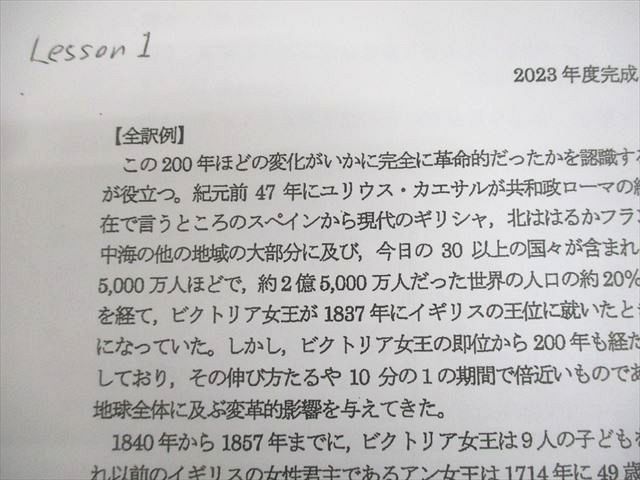 Lesson 1
2023 年度完成
【全訳例】
この 200 年ほどの変化がいかに完全に革命的だったかを認識する
が役立つ。紀元前 47 年にユリウス・カエサルが共和政ローマの
在で言うところのスペインから現代のギリシャ，北ははるかフラン
中海の他の地域の大部分に及び，今日の 30 以上の国々が含まれ
5,000 万人ほどで，約２億 5,000 万人だった世界の人口の約 20%
を経て，ビクトリア女王が 1837 年にイギリスの王位に就いたとき
になっていた。しかし，ビクトリア女王の即位から 200 年も経た
しており，その伸び方たるや 10 分の１の期間で倍近いものであ
地球全体に及ぶ変革的影響を与えてきた。
1840 年から 1857 年までに，ビクトリア女王は９人の子どもを
れ以前のイギリスの女性君主であるアン女王は 1714 年に 49 歳